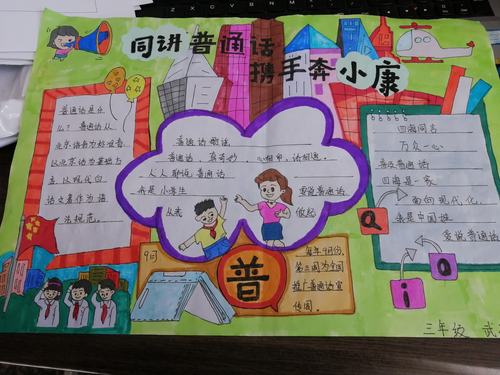 同讲普通话
携手奔小康
普通话是什
么？普通话以
北京语音为标准音
以北京话为基础方
言，以现代白
话文著作为语
法规范。
普通话歌谣
普通话，真奇妙，
人人都说普通话
我是小学生
要说普通话
从我
做起
四海同音
万众一心
普及普通话
四海是一家
面向现代化，
我是中国娃
爱说普通话
9月
普
每年9月份，
第三周为全国
推广普通话宣
传周。
Q
i
O
三年级